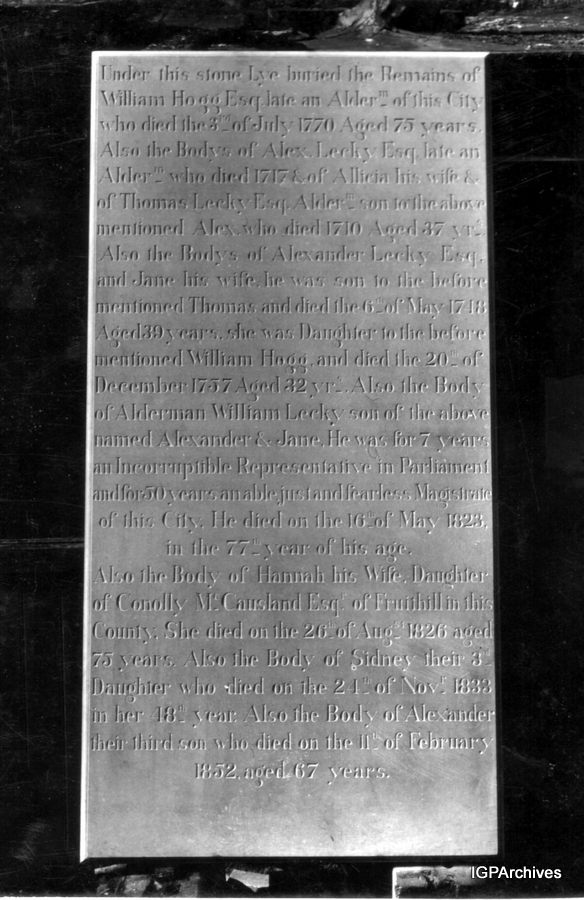 Under this stone Lye buried the Remains of
William Hogg Esq. late an Alderᵐ of this City
who died the 3ʳᵈ of July 1770 Aged 75 years.
Also the Bodys of Alex. Lecky Esq. late an
Alderᵐ who died 1717 & of Allicia his wife &
of Thomas Lecky Esq. Alderᵐ son to the above
mentioned Alex. who died 1710 Aged 37 yrˢ.
Also the Bodys of Alexander Lecky Esq.
and Jane his wife, he was son to the before
mentioned Thomas and died the 6ᵗʰ of May 1748
Aged 39 years, she was Daughter to the before
mentioned William Hogg, and died the 20ᵗʰ of
December 1757 Aged 32 yrˢ. Also the Body
of Alderman William Lecky son of the above
named Alexander & Jane. He was for 7 years
an Incorruptible Representative in Parliament
and for 50 years an able, just and fearless Magistrate
of this City. He died on the 16ᵗʰ of May 1823,
in the 77ᵗʰ year of his age.
Also the Body of Hannah his Wife, Daughter
of Conolly Mᶜ.Causland Esqʳ of Fruithill in this
County. She died on the 26ᵗʰ of Augˢᵗ 1826 aged
75 years. Also the Body of Sidney their 3ʳᵈ
Daughter who died on the 24ᵗʰ of Novʳ 1833
in her 48ᵗʰ year. Also the Body of Alexander
their third son who died on the 11ᵗʰ of February
1852, aged 67 years.
IGPArchives